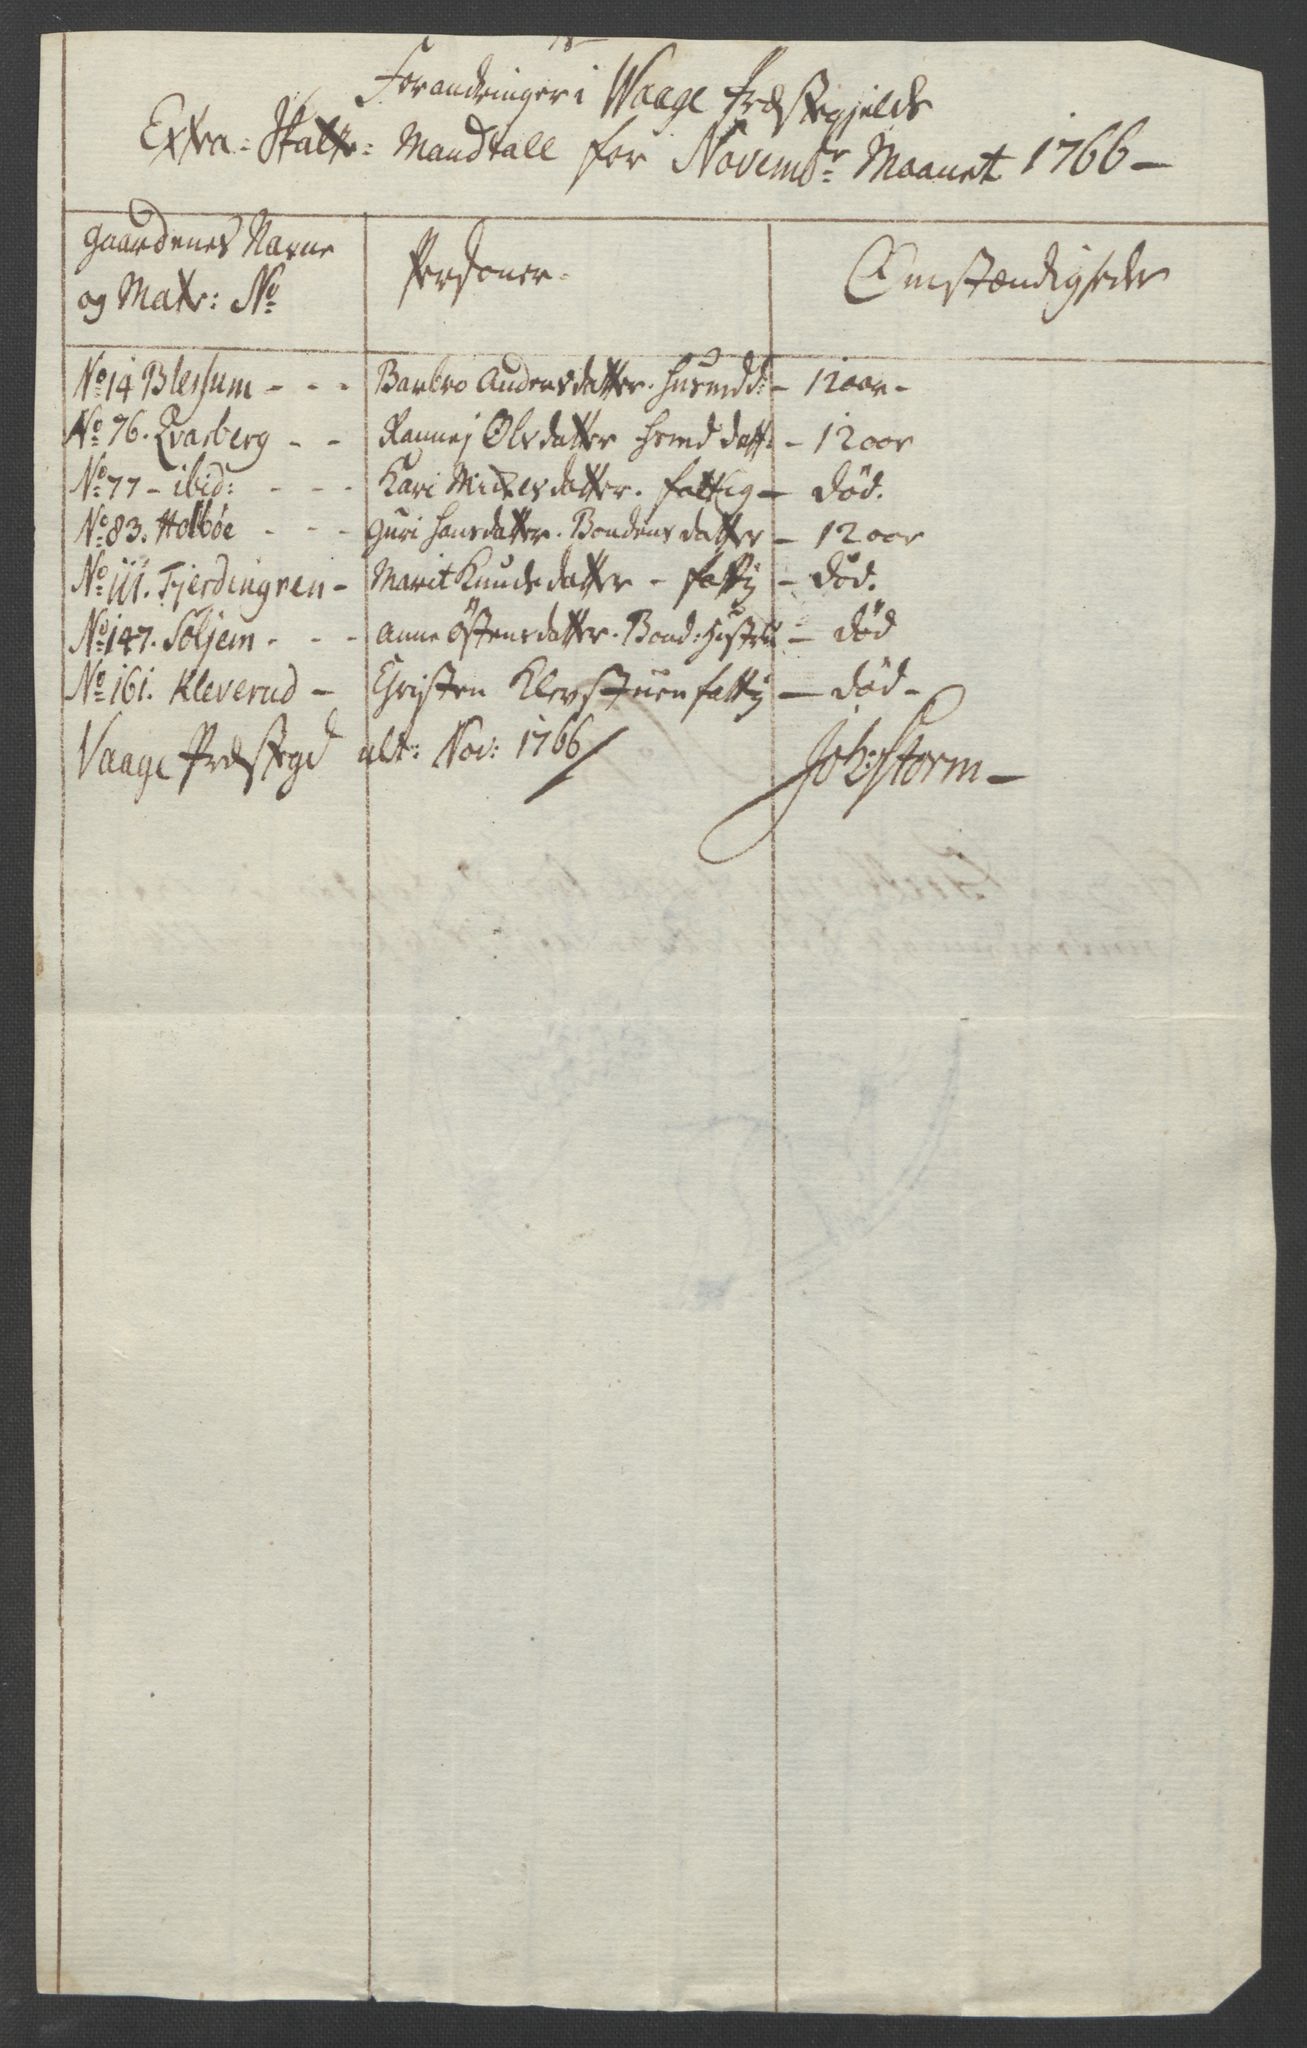 Forandringer i Waage Præstegjelds
Extra: Skatte: Mandtall for Novembr: Maanet 1766 –
Gaardenes Navne
og Matr: No
Personer.
Omstændigheder
No 14 Blessum - - - Barbro Andersdatter. Husmdd: – 12 aar –
No 76. Qvarberg - - Rannej Olsdatter Husmd datt. – 12 aar
No 77 – ibid: - - - Kari Michelsdatter. fattig – død.
No 83. Holbøe - - - Guri Hansdatter. Bondens datter – 12 aar
No 111. Fjerdingren – Marit Knudsdatter – fattig – død.
No 147. Soljem - - - Anne Östensdatter. Bond: Hustru – død
No 161. Kleverud – Christen Klevstuen fattig – død –
Vaage Præstegd ult: Nov: 1766
Joh: Storm –